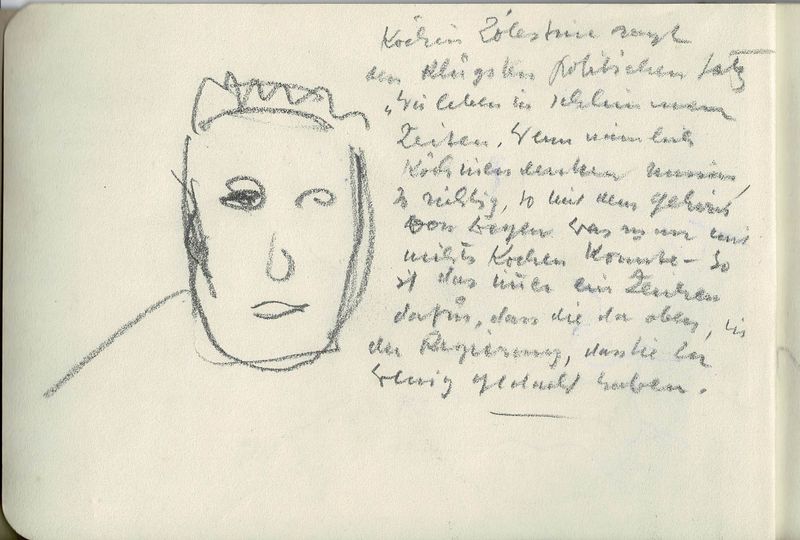 Köchin Zölestine sagt
den klügsten politischen Satz
„Wir leben in schlimmen
Zeiten. Wenn nämlich
Köchinnen denken müssen,
so richtig, so mit dem gehirn
von wegen was man mit
nichts Kochen Konnte – So
ist das immer ein Zeichen
dafür, dass die da oben, in
der Regierung, dass die zu
wenig gedacht haben.